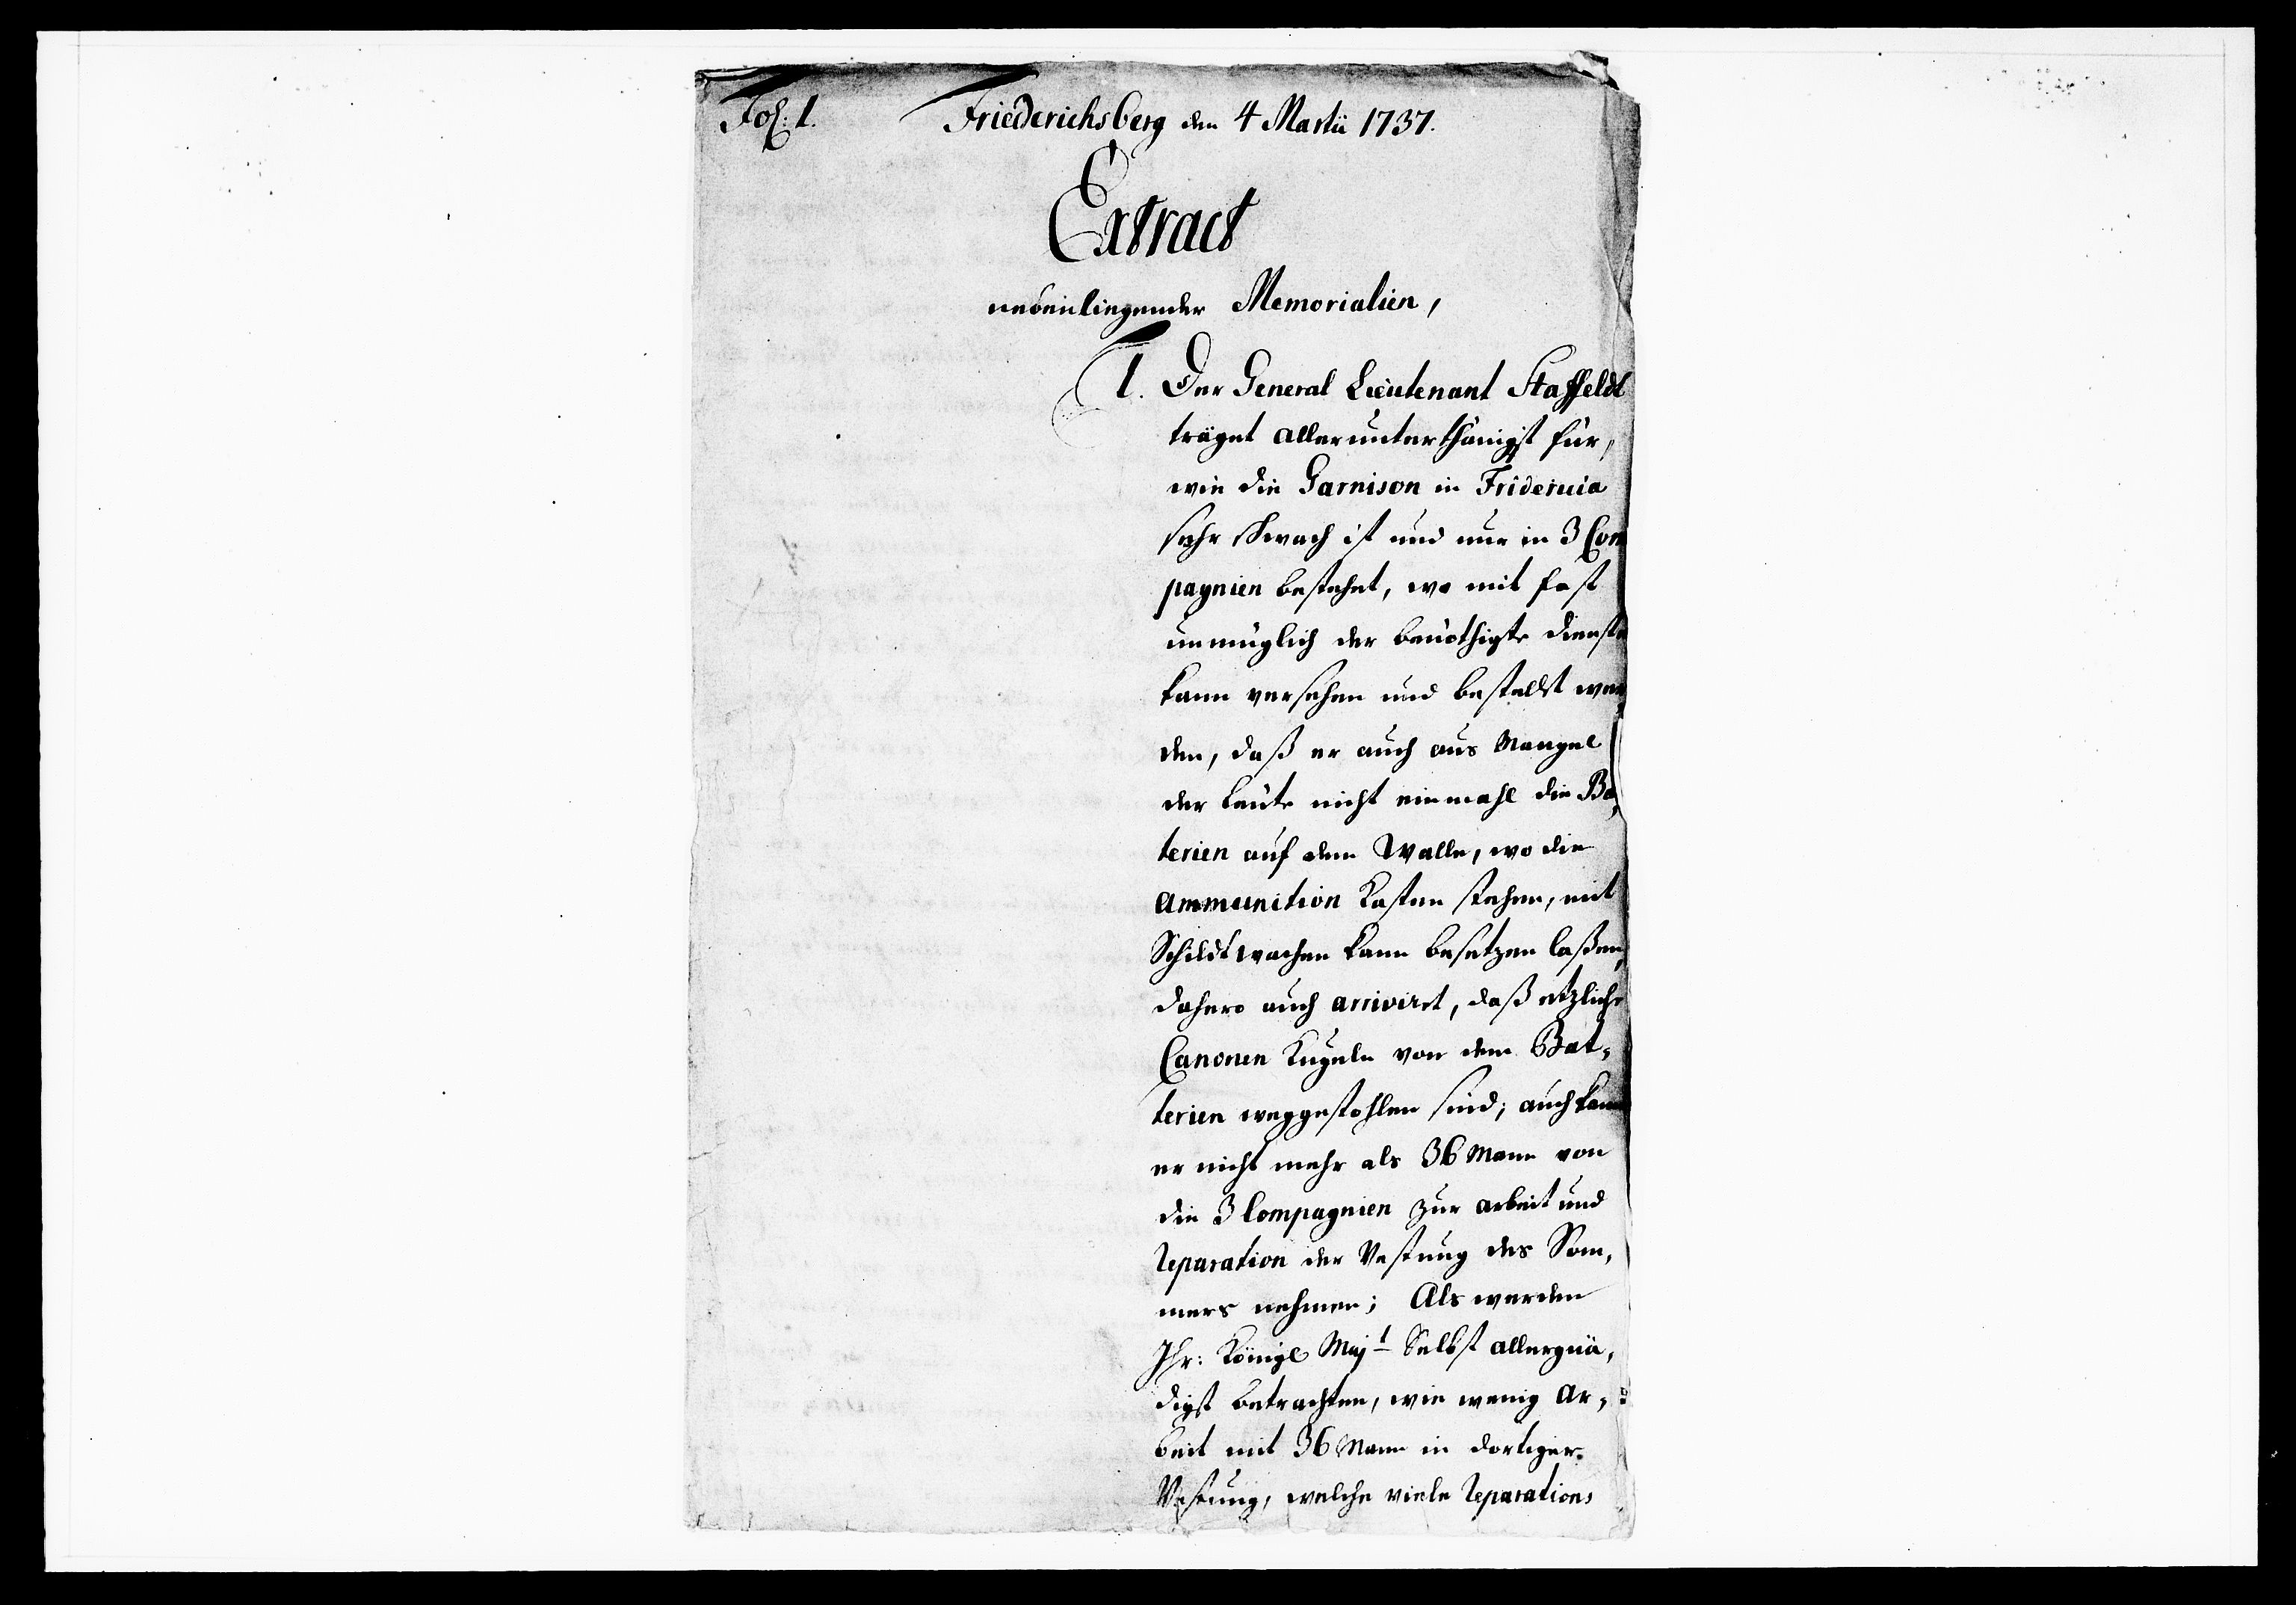 Fol: 1. Friederichsberg den 4 Martii 1737.
Extract
nebenliegender Memorialien,
1. Der General Lieutenant Staffeldt
träget allerunterthänigst für,
wie die Garnison in Fridericia
sehr schwach ist und nur in 3 Com
pagnien bestehet, wo mit fast
unmüglich der benöthigte Dienste
kann versehen und bestellt wer,
den, daß er auch aus Mangel
der Leute nicht einmahl die Ba,
terien auf dem Walle, wo die
Ammunition Kasten stehen, mit
Schildtwachen kann besetzen laßen,
dahero auch arriviret, daß etzliche
Canonen Kugeln von dem Bat,
terien weggestohlen sind; auch kann
er nicht mehr als 36 Mann von
die 3 Compagnien zur arbeit und
Reparation der Vestung des Som,
mers nehmen; Als werden
Ihr: Königl Majt Selbst allergnä,
digst betrachten, wie wenig Ar,
beit mit 36 Mann in dortiger
Vestung, welche viele Reparations